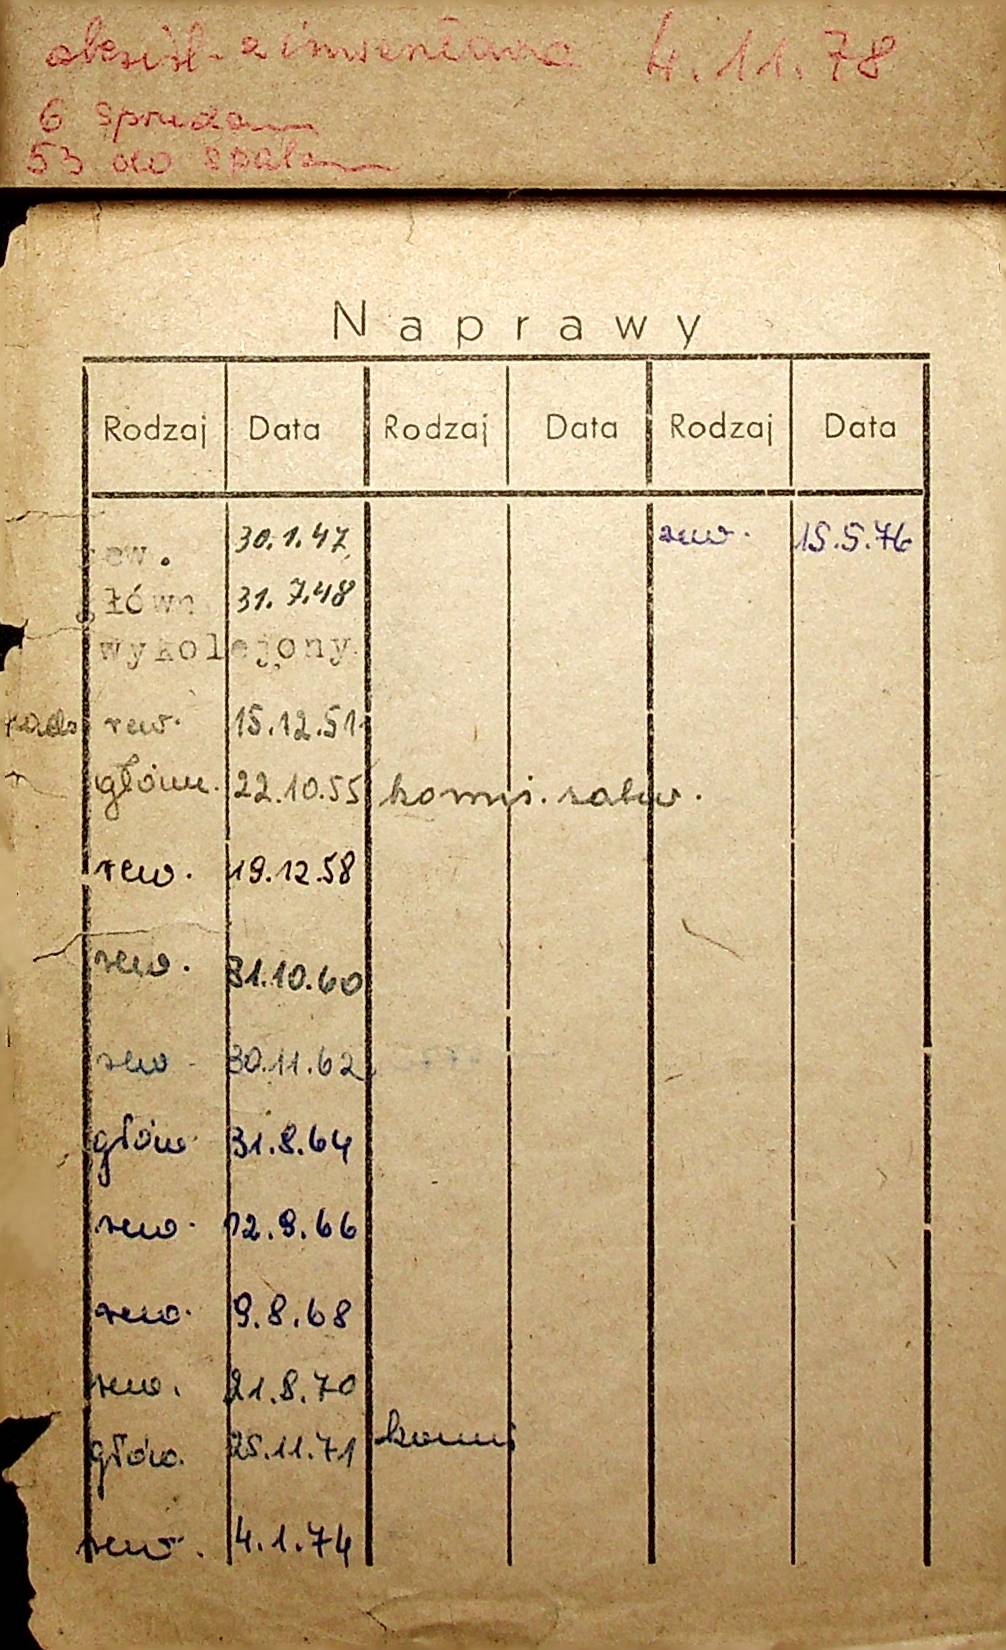 4.11.78
6
53 do
Naprawy
Rodzaj Data Rodzaj Data Rodzaj Data
ew. 30.1.47 rew. 15.5.76
główn 31.7.48
wykolejony
rew. 15.12.51
główn. 22.10.55
rew. 19.12.58
rew. 31.10.60
rew 30.11.62
głów 31.8.64
rew. 12.9.66
rew. 9.8.68
rew. 21.8.70
głów. 25.11.71
rew. 4.1.74